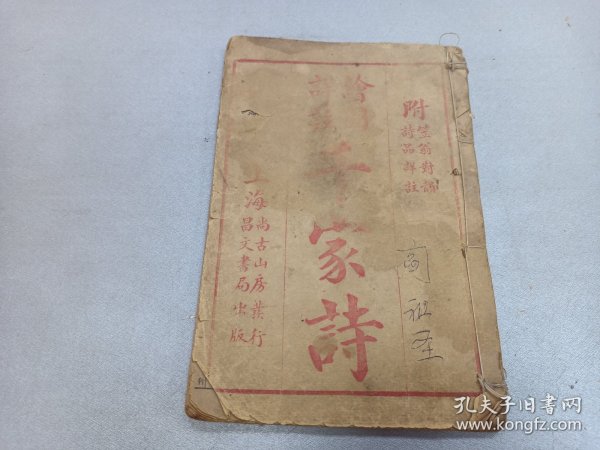 附
笠翁對韻
詩品詳註
繪圖
千家詩
上海
尚古山房發行
昌文書局出版
商祖圣
孔夫子旧书网
www.kongfz.com